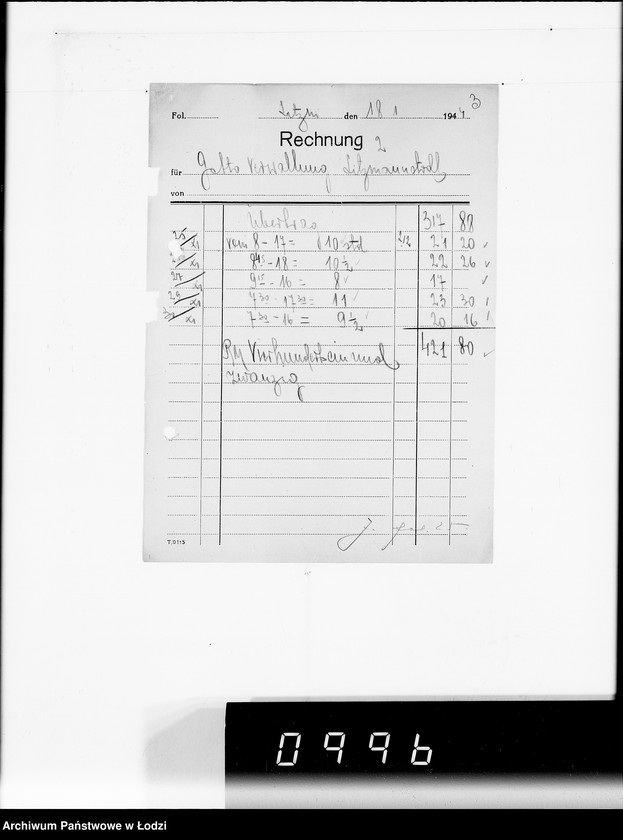 3
Fol. Litzm den 18 1 1941
Rechnung 2
für Getto Verwaltung Litzmannstadt
von
Übertrag 317 88
25/XI vom 8 - 17 = 10 std 2/12 21 20
XI 8 45 - 18 = 10 1/2 22 26
27/XI 9 15 - 16 = 8 17
29/XI 7 30 - 17 30 = 11 23 30
XI 7 30 - 16 = 9 1/2 20 16
421 80
RM Vierhundertein und
zwanzig
J.
T. 0113
0996
Archiwum Państwowe w Łodzi